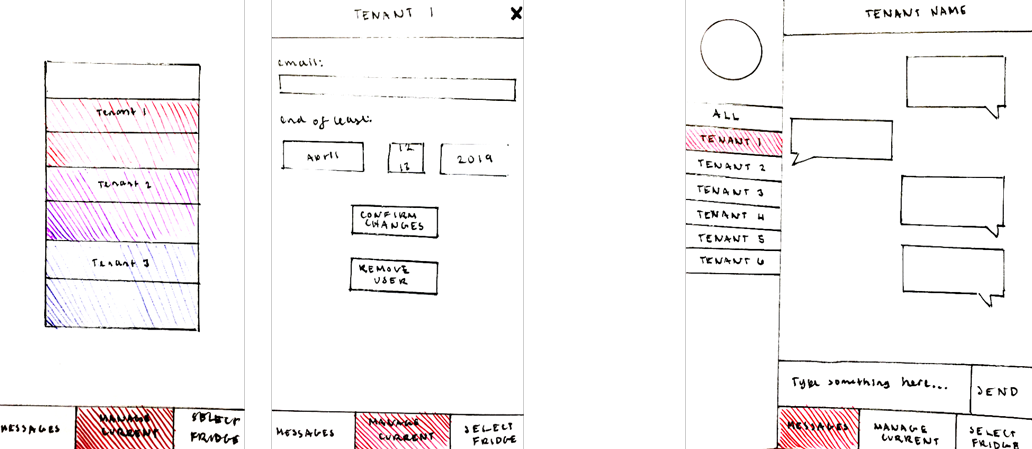 Tenant 1
Tenant 2
Tenant 3
MESSAGES
MANAGE
CURRENT
SELECT
FRIDGE
TENANT 1
X
email:
end of lease:
April
12
13
2019
CONFIRM
CHANGES
REMOVE
USER
MESSAGES
MANAGE
CURRENT
SELECT
FRIDGE
TENANT NAME
ALL
TENANT 1
TENANT 2
TENANT 3
TENANT 4
TENANT 5
TENANT 6
Type something here...
SEND
MESSAGES
MANAGE
CURRENT
SELECT
FRIDGE